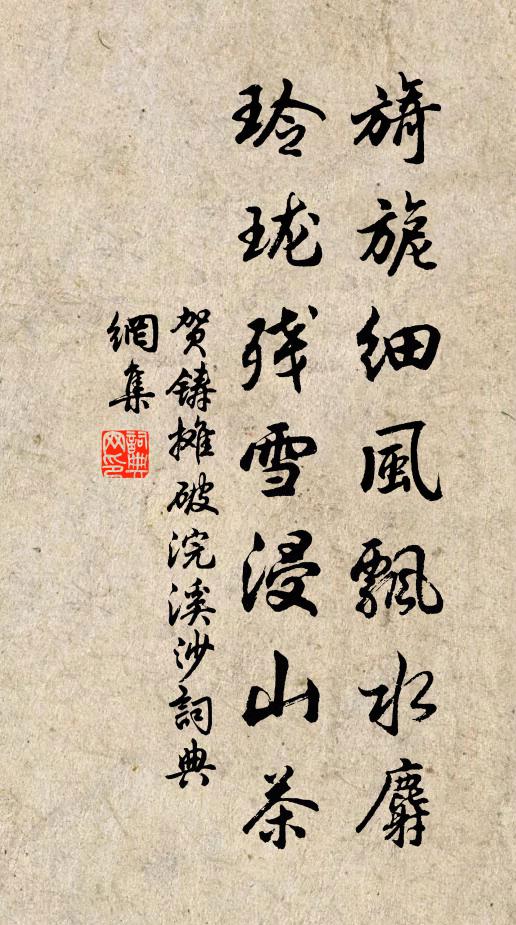 旖旎细風飄水麝
玲珑残雪浸山茶
贺鑄攤破浣溪沙詞典
網集
詞典網印